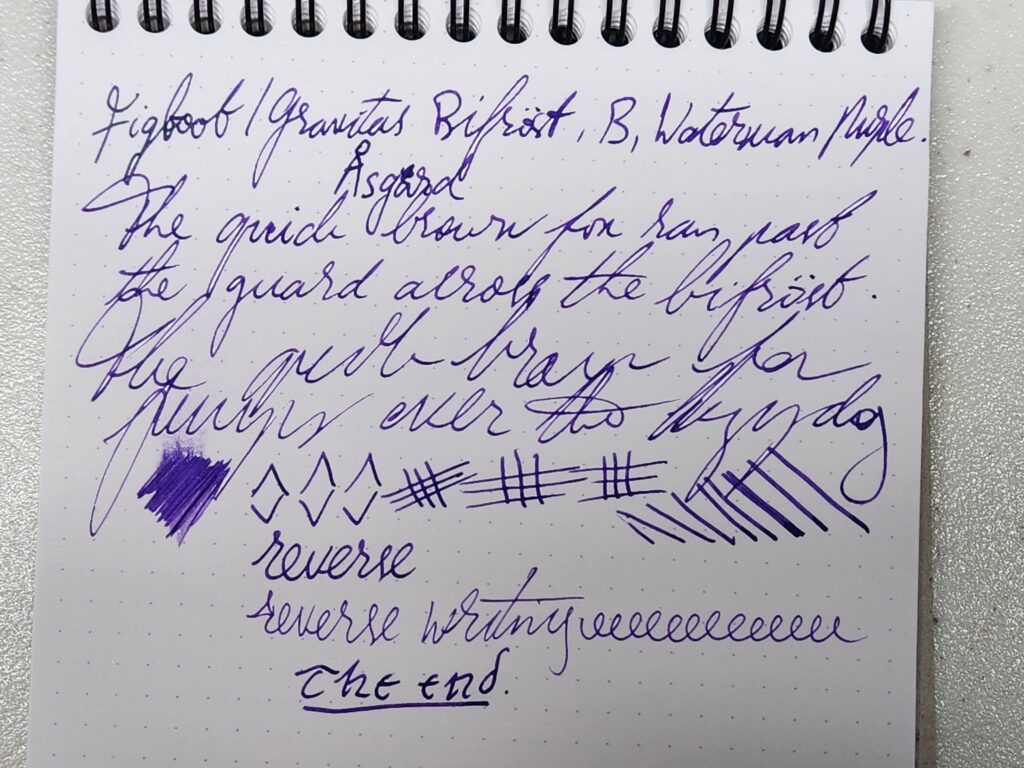 Figboot / Gravitas Bifröst, B, Waterman Purple.
Åsgard
The quick brown fox ran past
the guard across the bifröst.
The quick brown fox
jumps over the lazy dog
reverse
reverse writing
The end.